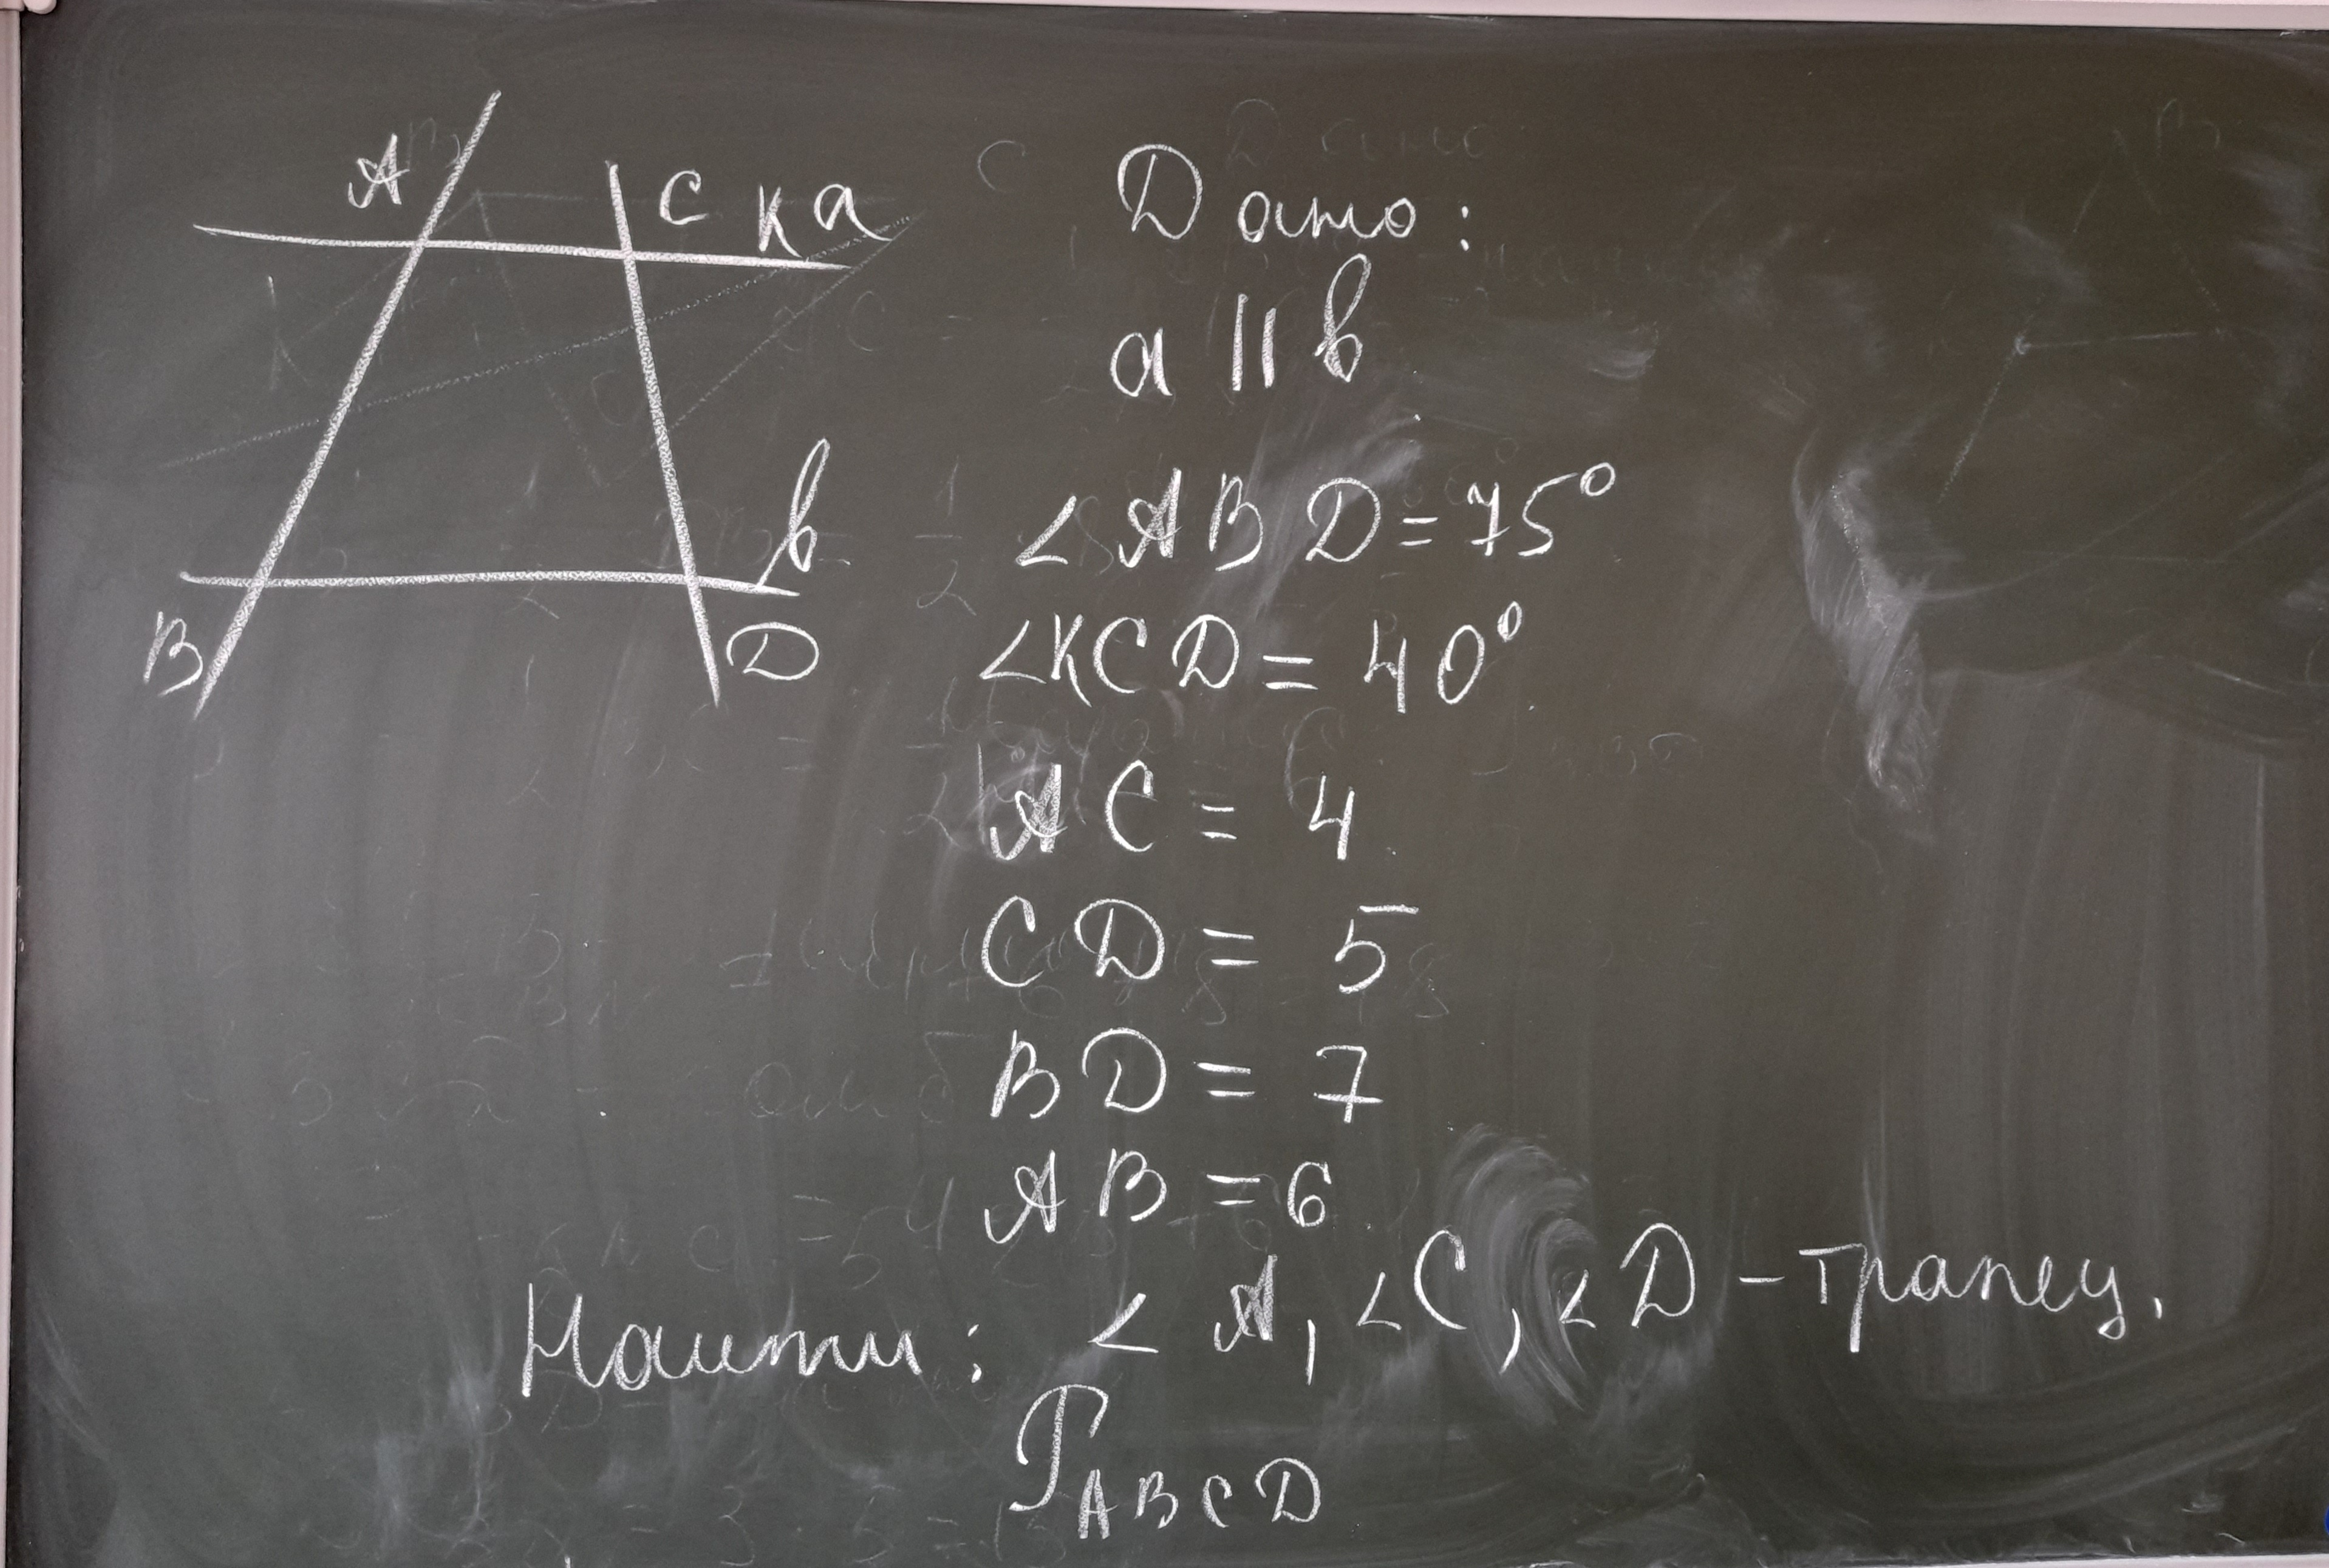 A
C K a
b
B
D
Дано:
a || b
∠ABD = 75°
∠KCD = 40°
AC = 4
CD = 5
BD = 7
AB = 6
Найти: ∠A, ∠C, ∠D - трапец.
P ABCD